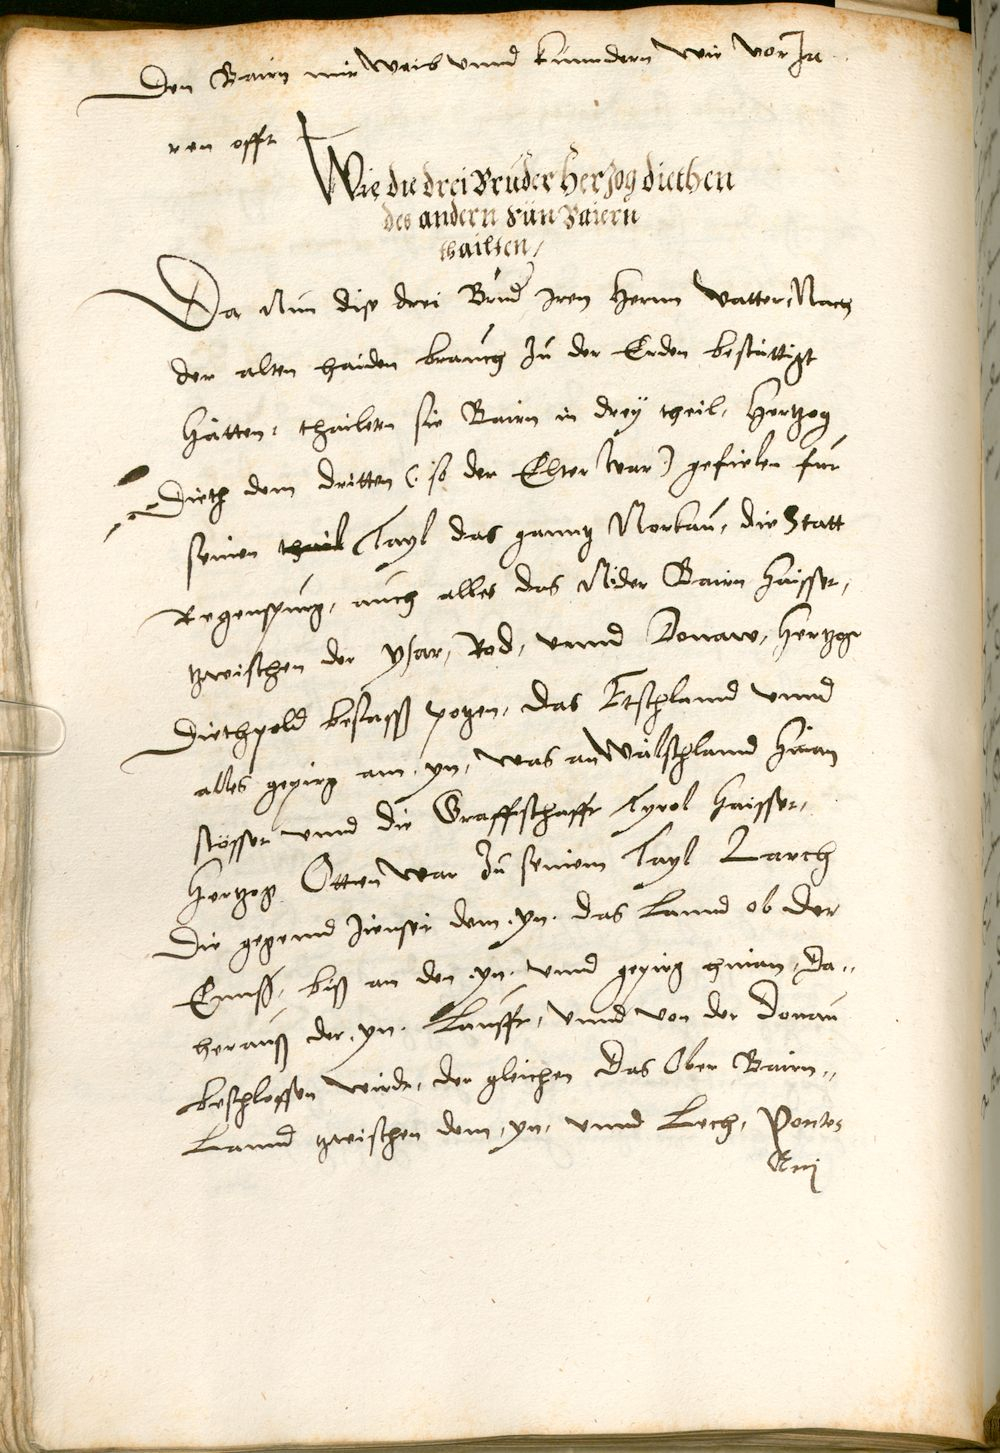 Den Bairn mit Weib vnnd Kinndern wie vor Ja
ren offt
Wie die drei Brüder Herzog diethen
des andern Sün Baiern
thailten,
Da Nun dise drei Brüd iren Herrn Vatter, Nach
der alten haiden brauch zu der Erden bestättigt
hätten, thailten sie Bairn in drey theil, Hertzog
Dieth dem dritten (so der Elter war) gefielen für
seinen Tayl das ganntz Norkau, die Statt
Regenspurg, auch alles das Nider Bairn haisset,
tzwischen der ysar, Rod, vnnd Donaw, Hertzog
Diethpold besass potzen, das Etschlannd vnnd
alles gepirg am yn, was an Wälschland hinan
stösset vnnd die Graffschafft Tyrol haisset,
Hertzog Otten war zu seinem Tayl Larch
Die gegennd Jenseit dem .yn. das Lannd ob der
Ennß, biß an den .yn. vnnd gepirg hinan, da„
herauß der .yn. Laufft, vnnd von der Donau
beschlossen wirdt, der gleichen das Ober Bairn„
Lannd tzwischen dem .yn. vnnd Lech, Pontes